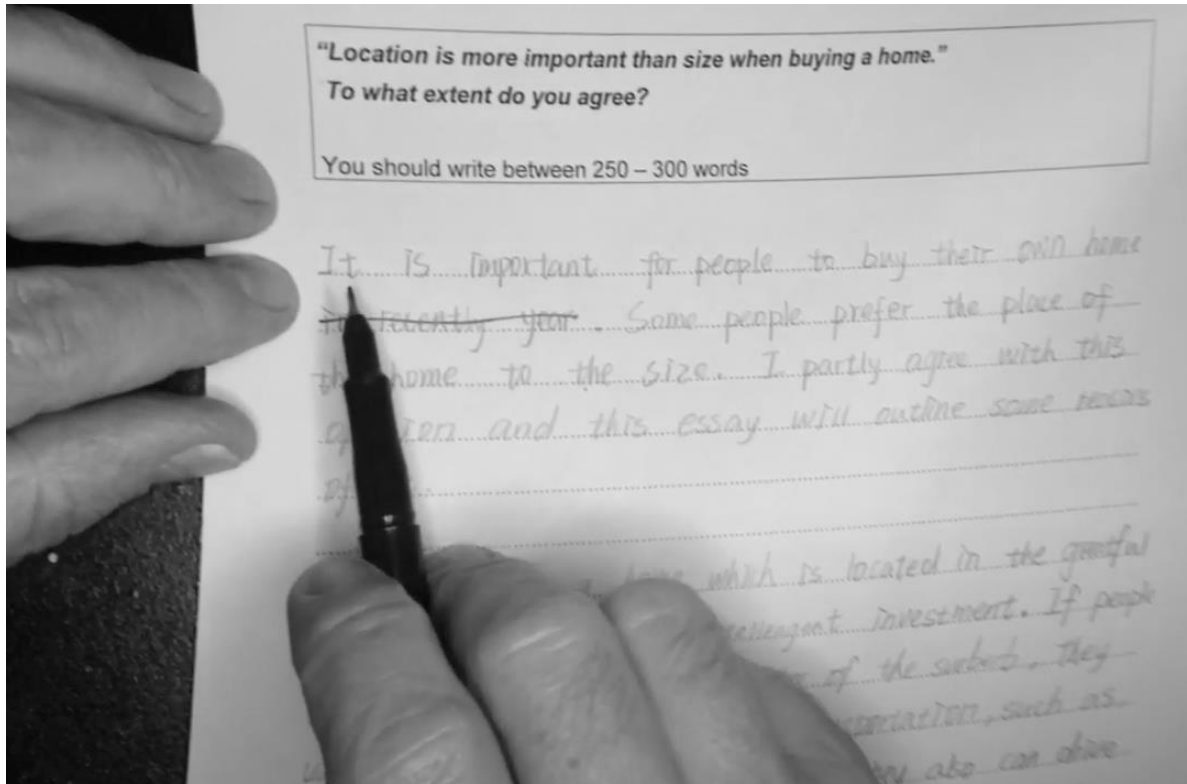 “Location is more important than size when buying a home.”
To what extent do you agree?
You should write between 250 – 300 words
It is important for people to buy their own home
recently year. Some people prefer the place of
home to the size. I partly agree with this
and this essay will outline some
which is located in the
investment. If people
of the suburb. They
such as
also can drive